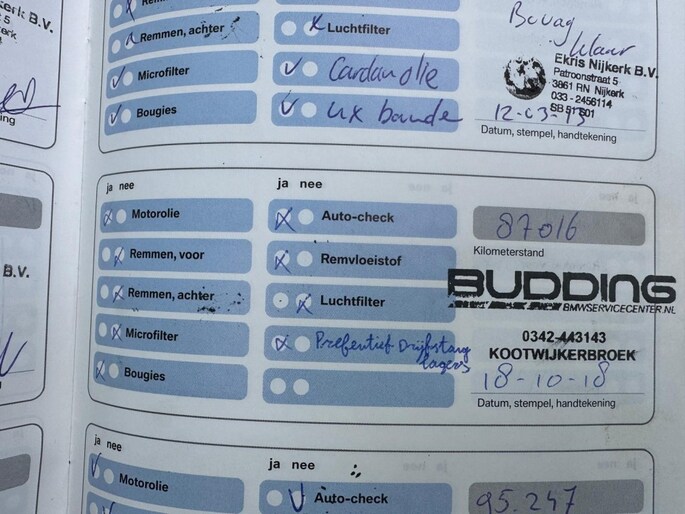 Remmen, achter
Luchtfilter
Bovag
klaar
Microfilter
Cardanolie
Bougies
4x bande
Ekris Nijkerk B.V.
Patroonstraat 5
3861 RN Nijkerk
033 - 2456114
12-03-15
Datum, stempel, handtekening
ja nee
ja nee
Motorolie
Auto-check
87016
Kilometerstand
Remmen, voor
Remvloeistof
B.V.
BUDDING
BMWSERVICECENTER.NL
Remmen, achter
Luchtfilter
0342-443143
KOOTWIJKERBROEK
Microfilter
Prefentief Drijfstang
lagers
18-10-18
Bougies
Datum, stempel, handtekening
ja nee
ja nee
Motorolie
Auto-check
95.247